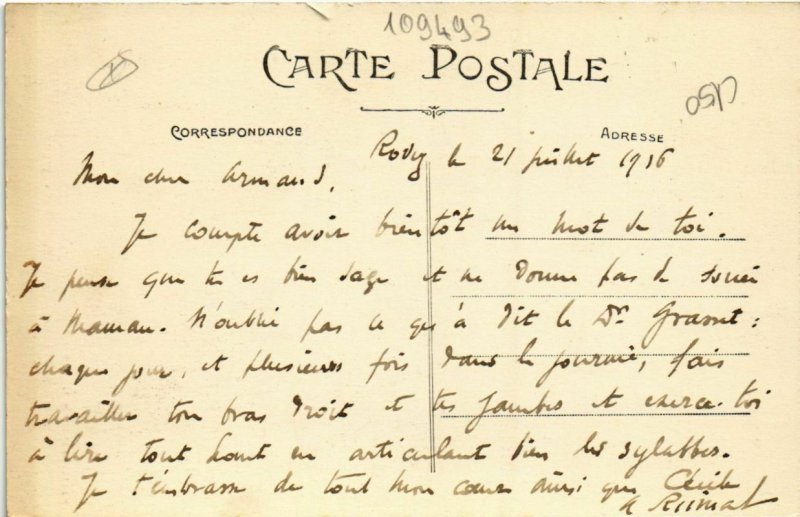 109493
CARTE POSTALE
CORRESPONDANCE
ADRESSE
Rodez le 21 juillet 1916
Mon cher Armand,
Je compte avoir bientôt un mot de toi.
Je pense que tu es bien sage et ne donne pas de souci
à Maman. N'oublie pas ce qu'a dit le Dr Grasset :
chaque jour, et plusieurs fois dans la journée, fais
travailler ton bras droit et tes jambes et exerce-toi
à lire tout haut en articulant bien les syllabes.
Je t'embrasse de tout mon cœur ainsi que Cécile